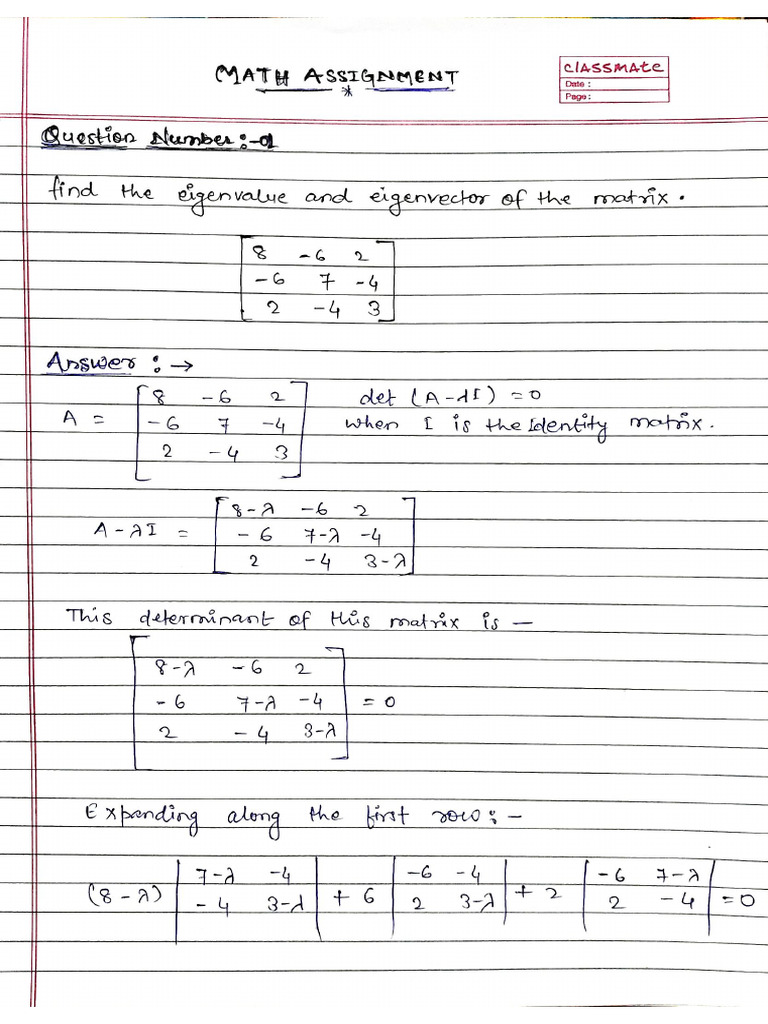 MATH ASSIGNMENT
*
CLASSMATE
Date :
Page :
Question Number:-1
find the eigenvalue and eigenvector of the matrix.
8 -6 2
-6 7 -4
2 -4 3
Answer :→
A = [8 -6 2
-6 7 -4
2 -4 3]
det (A-λI) = 0
when I is the Identity matrix.
A-λI = [8-λ -6 2
-6 7-λ -4
2 -4 3-λ]
This determinant of this matrix is —
[8-λ -6 2
-6 7-λ -4
2 -4 3-λ] = 0
Expanding along the first row:-
(8-λ) |7-λ -4| + 6 |-6 -4| + 2 |-6 7-λ|
|-4 3-λ| |2 3-λ| |2 -4| = 0